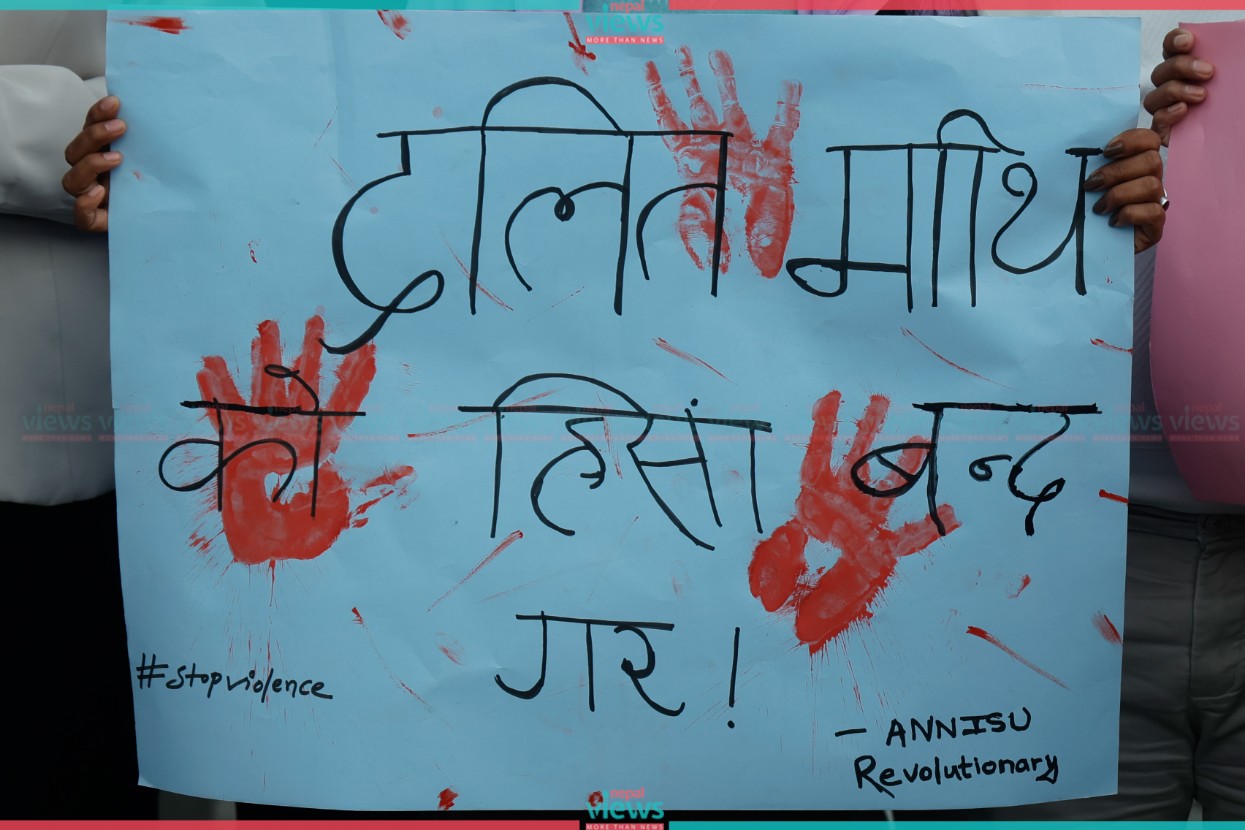 nepal
views
MORE THAN NEWS
दलित माथि
को हिसां बन्द
गर !
#stopviolence
— ANNISU
Revolutionary
nepal
views
MORE THAN NEWS